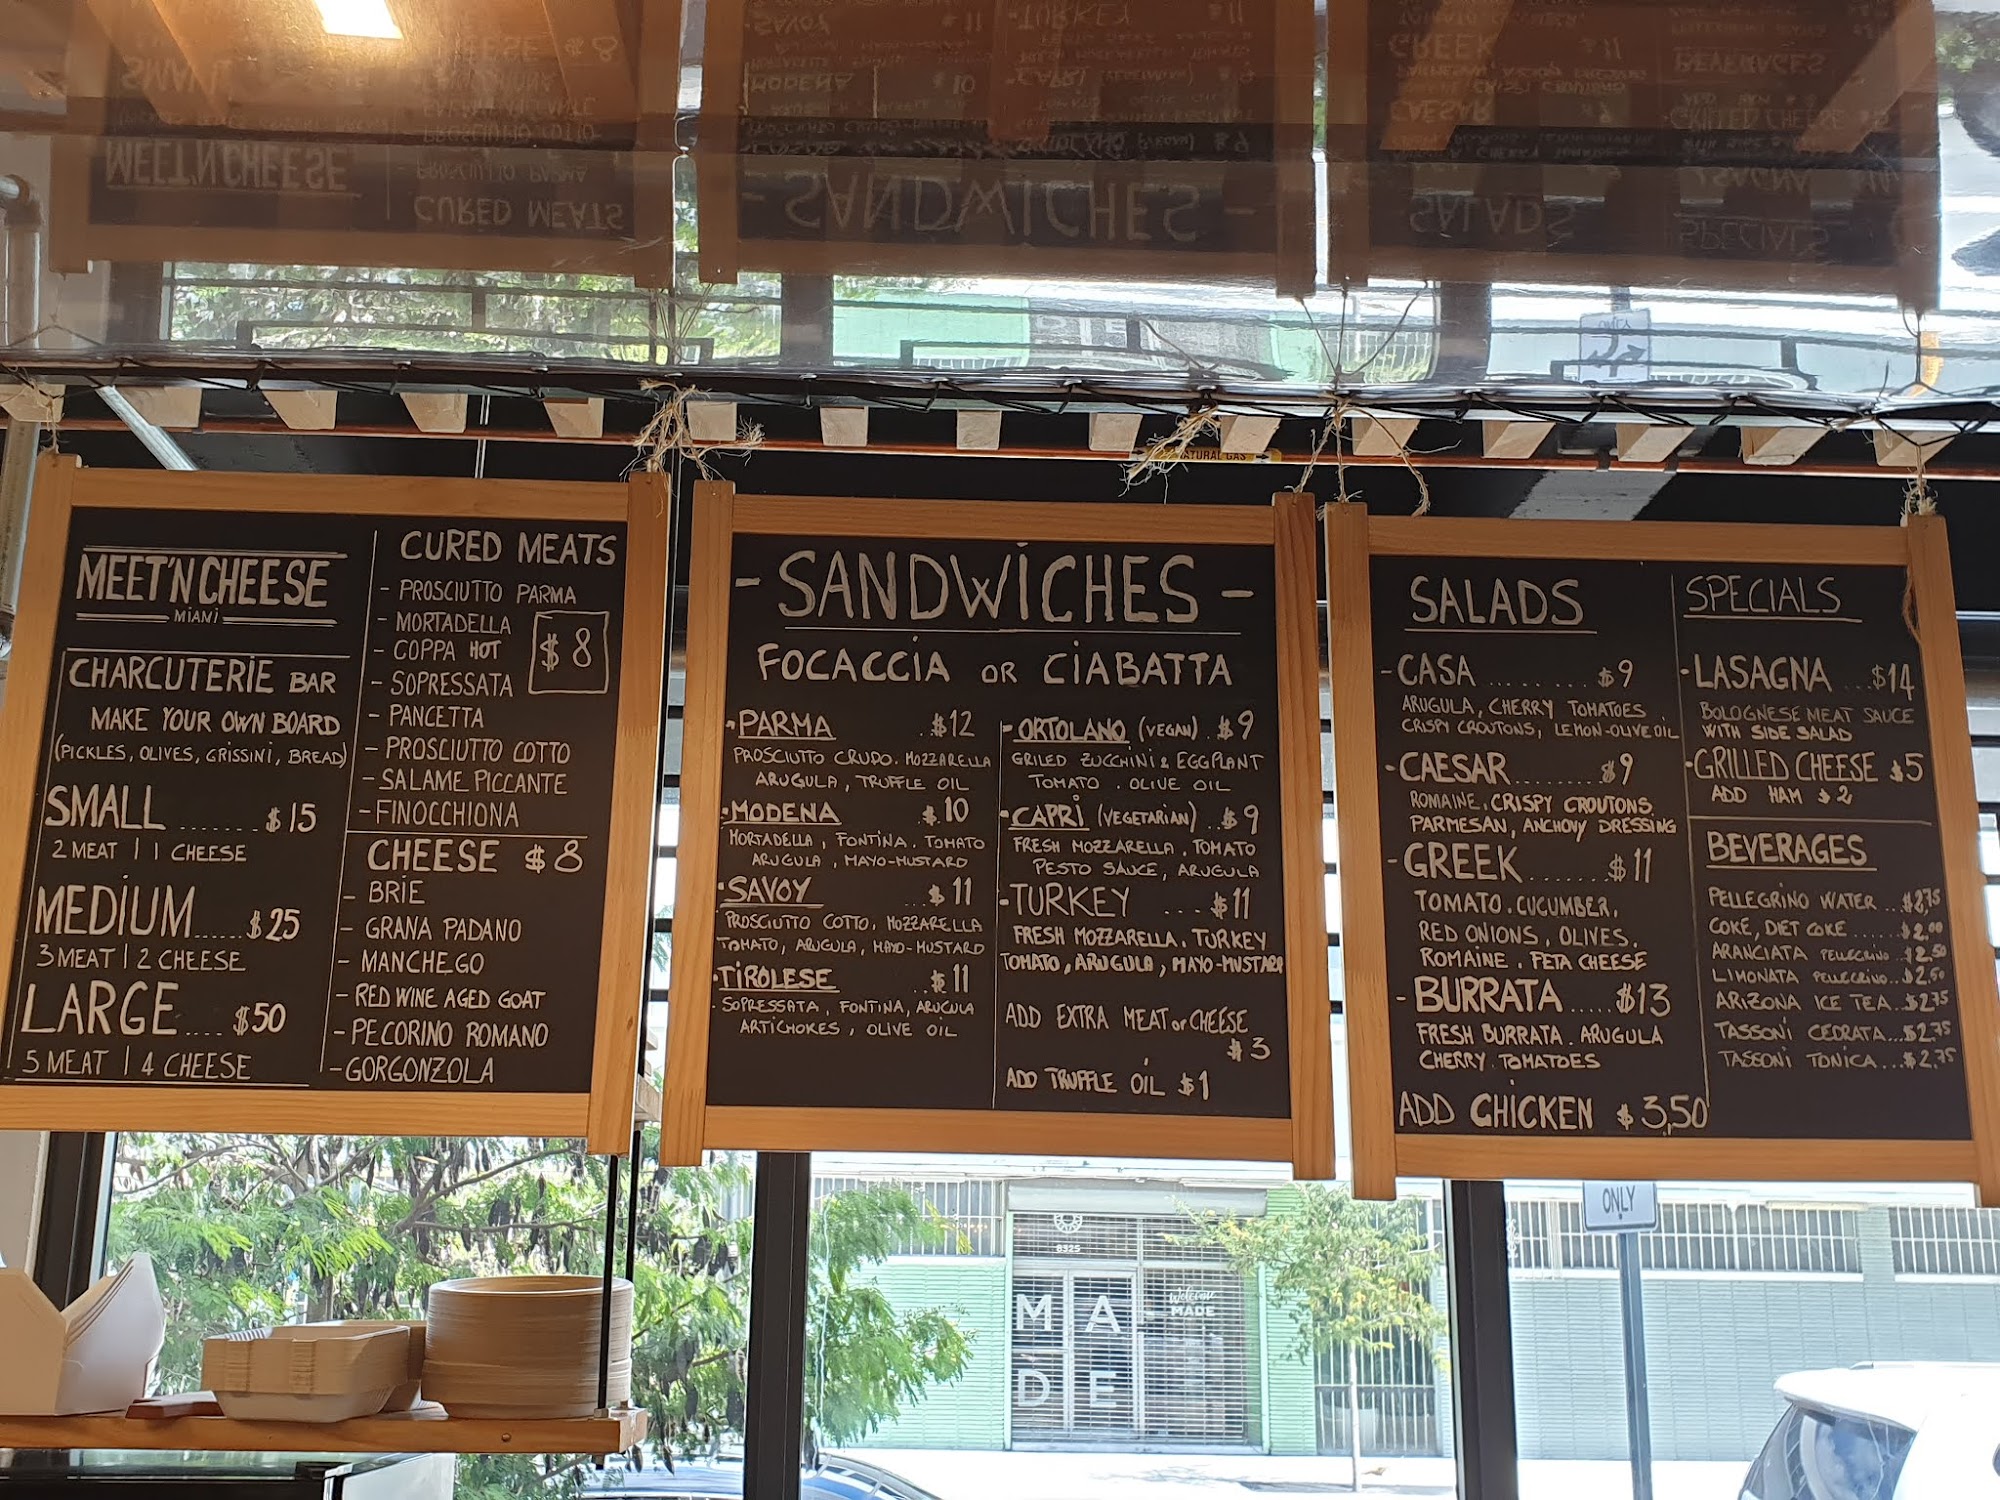 MEET'N CHEESE
MIAMI
CHARCUTERIE BAR
MAKE YOUR OWN BOARD
(PICKLES, OLIVES, GRISSINI, BREAD)
SMALL ....... $15
2 MEAT | 1 CHEESE
MEDIUM...... $25
3 MEAT | 2 CHEESE
LARGE .... $50
5 MEAT | 4 CHEESE
CURED MEATS
- PROSCIUTTO PARMA
- MORTADELLA
- COPPA HOT
$8
- SOPRESSATA
- PANCETTA
- PROSCIUTTO COTTO
- SALAME PICCANTE
- FINOCCHIONA
CHEESE $8
- BRIE
- GRANA PADANO
- MANCHEGO
- RED WINE AGED GOAT
- PECORINO ROMANO
- GORGONZOLA
- SANDWICHES -
FOCACCIA OR CIABATTA
- PARMA . $12
PROSCIUTTO CRUDO. MOZZARELLA
ARUGULA, TRUFFLE OIL
- MODENA $10
MORTADELLA, FONTINA. TOMATO
ARUGULA, MAYO-MUSTARD
- SAVOY $11
PROSCIUTTO COTTO, MOZZARELLA
TOMATO, ARUGULA, MAYO-MUSTARD
- TIROLESE ..$11
SOPRESSATA, FONTINA, ARUCULA
ARTICHOKES, OLIVE OIL
- ORTOLANO (VEGAN) . $9
GRILED ZUCCHINI & EGGPLANT
TOMATO . OLIVE OIL
- CAPRI (VEGETARIAN) .. $9
FRESH MOZZARELLA . TOMATO
PESTO SAUCE, ARUGULA
- TURKEY ... $11
FRESH MOZZARELLA. TURKEY
TOMATO, ARUGULA, MAYO-MUSTARD
ADD EXTRA MEAT or CHEESE
$3
ADD TRUFFLE OIL $1
SALADS
- CASA ......... $9
ARUGULA, CHERRY TOMATOES
CRISPY CROUTONS, LEMON-OLIVE OIL
- CAESAR ....... $9
ROMAINE, CRISPY CROUTONS
PARMESAN, ANCHOVY DRESSING
- GREEK ....... $11
TOMATO . CUCUMBER,
RED ONIONS, OLIVES.
ROMAINE . FETA CHEESE
- BURRATA ..... $13
FRESH BURRATA. ARUGULA
CHERRY. TOMATOES
ADD CHICKEN $3,50
SPECIALS
- LASAGNA ...$14
BOLOGNESE MEAT SAUCE
WITH SIDE SALAD
- GRILLED CHEESE $5
ADD HAM $2
BEVERAGES
PELLEGRINO WATER ...$2,75
COKE, DIET COKE ..... $2.00
ARANCIATA PELLEGRINO..$2.50
LIMONATA PELLEGRINO..$2.50
ARIZONA ICE TEA..$2.75
TASSONI CEDRATA...$2.75
TASSONI TONICA...$2.75
NATURAL GAS
ONLY
8325
MADE
Welcome
MADE